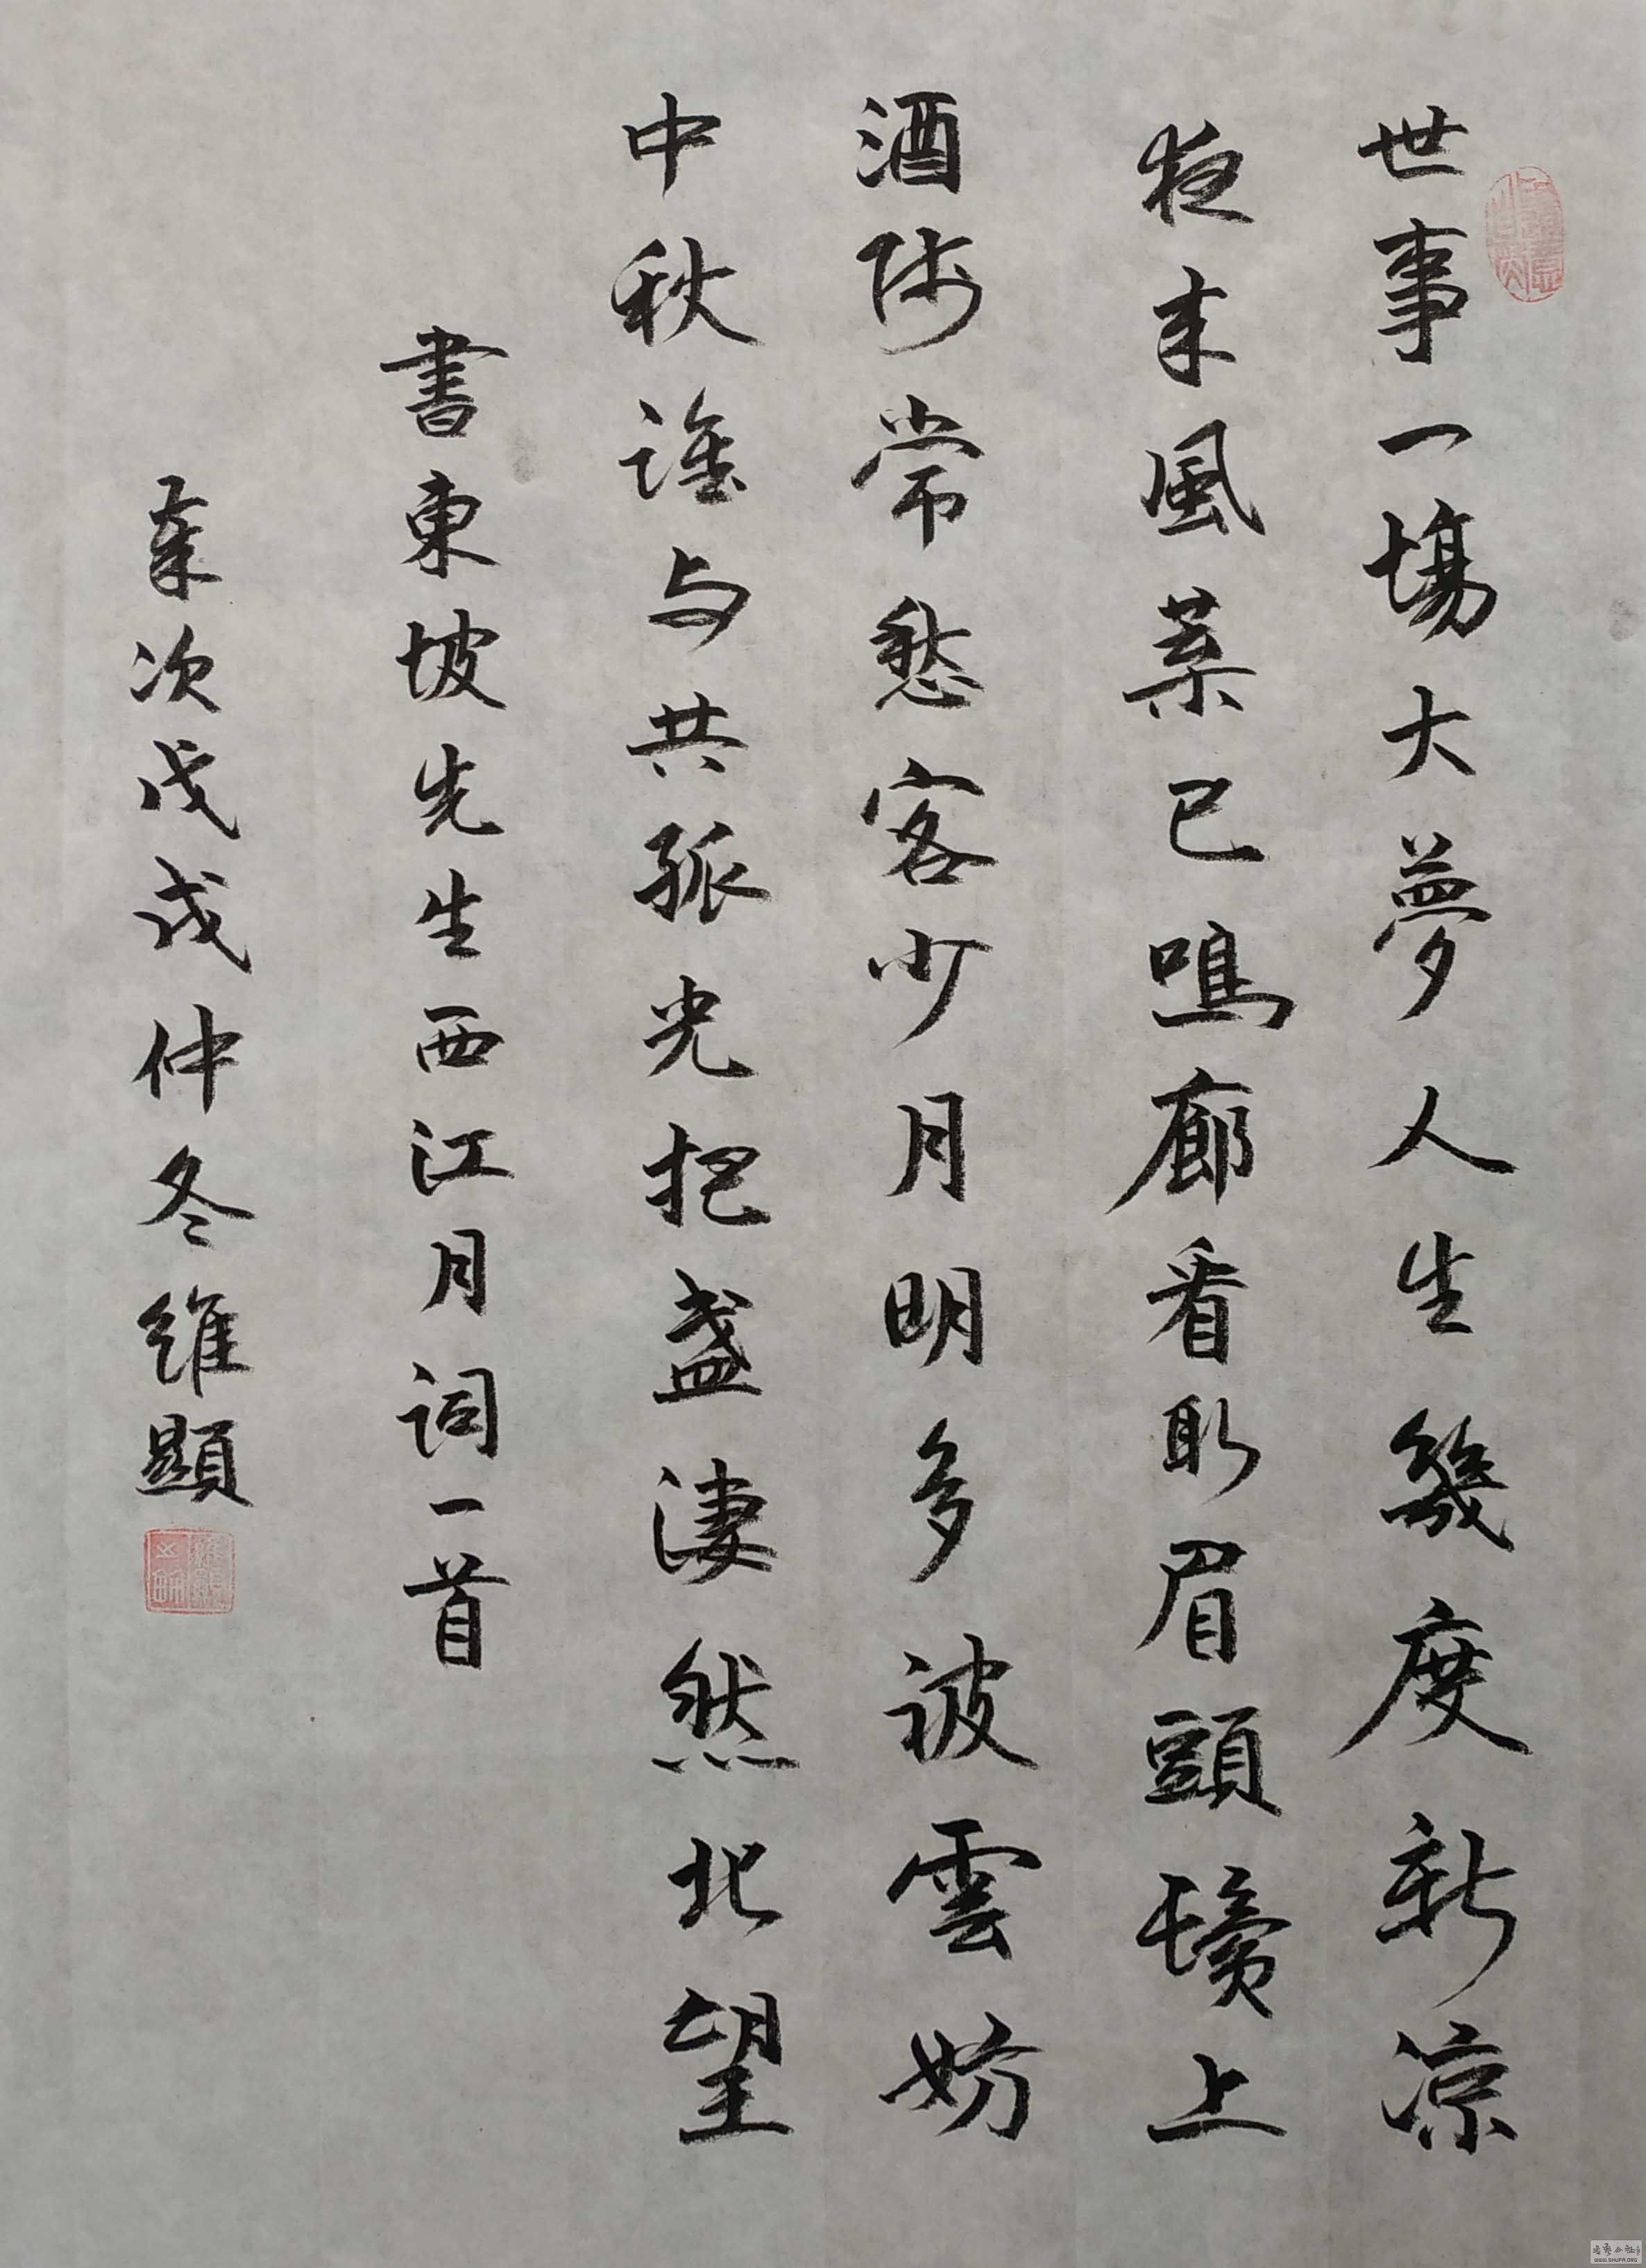 世事一場大夢人生幾度新涼
夜來風葉已鳴廊看取眉頭鬢上
酒賤常愁客少月明多被雲妨
中秋誰与共孤光把盞淒然北望
書東坡先生西江月詞一首
歲次戊戌仲冬維顯
WWW.SHUFR.ORG